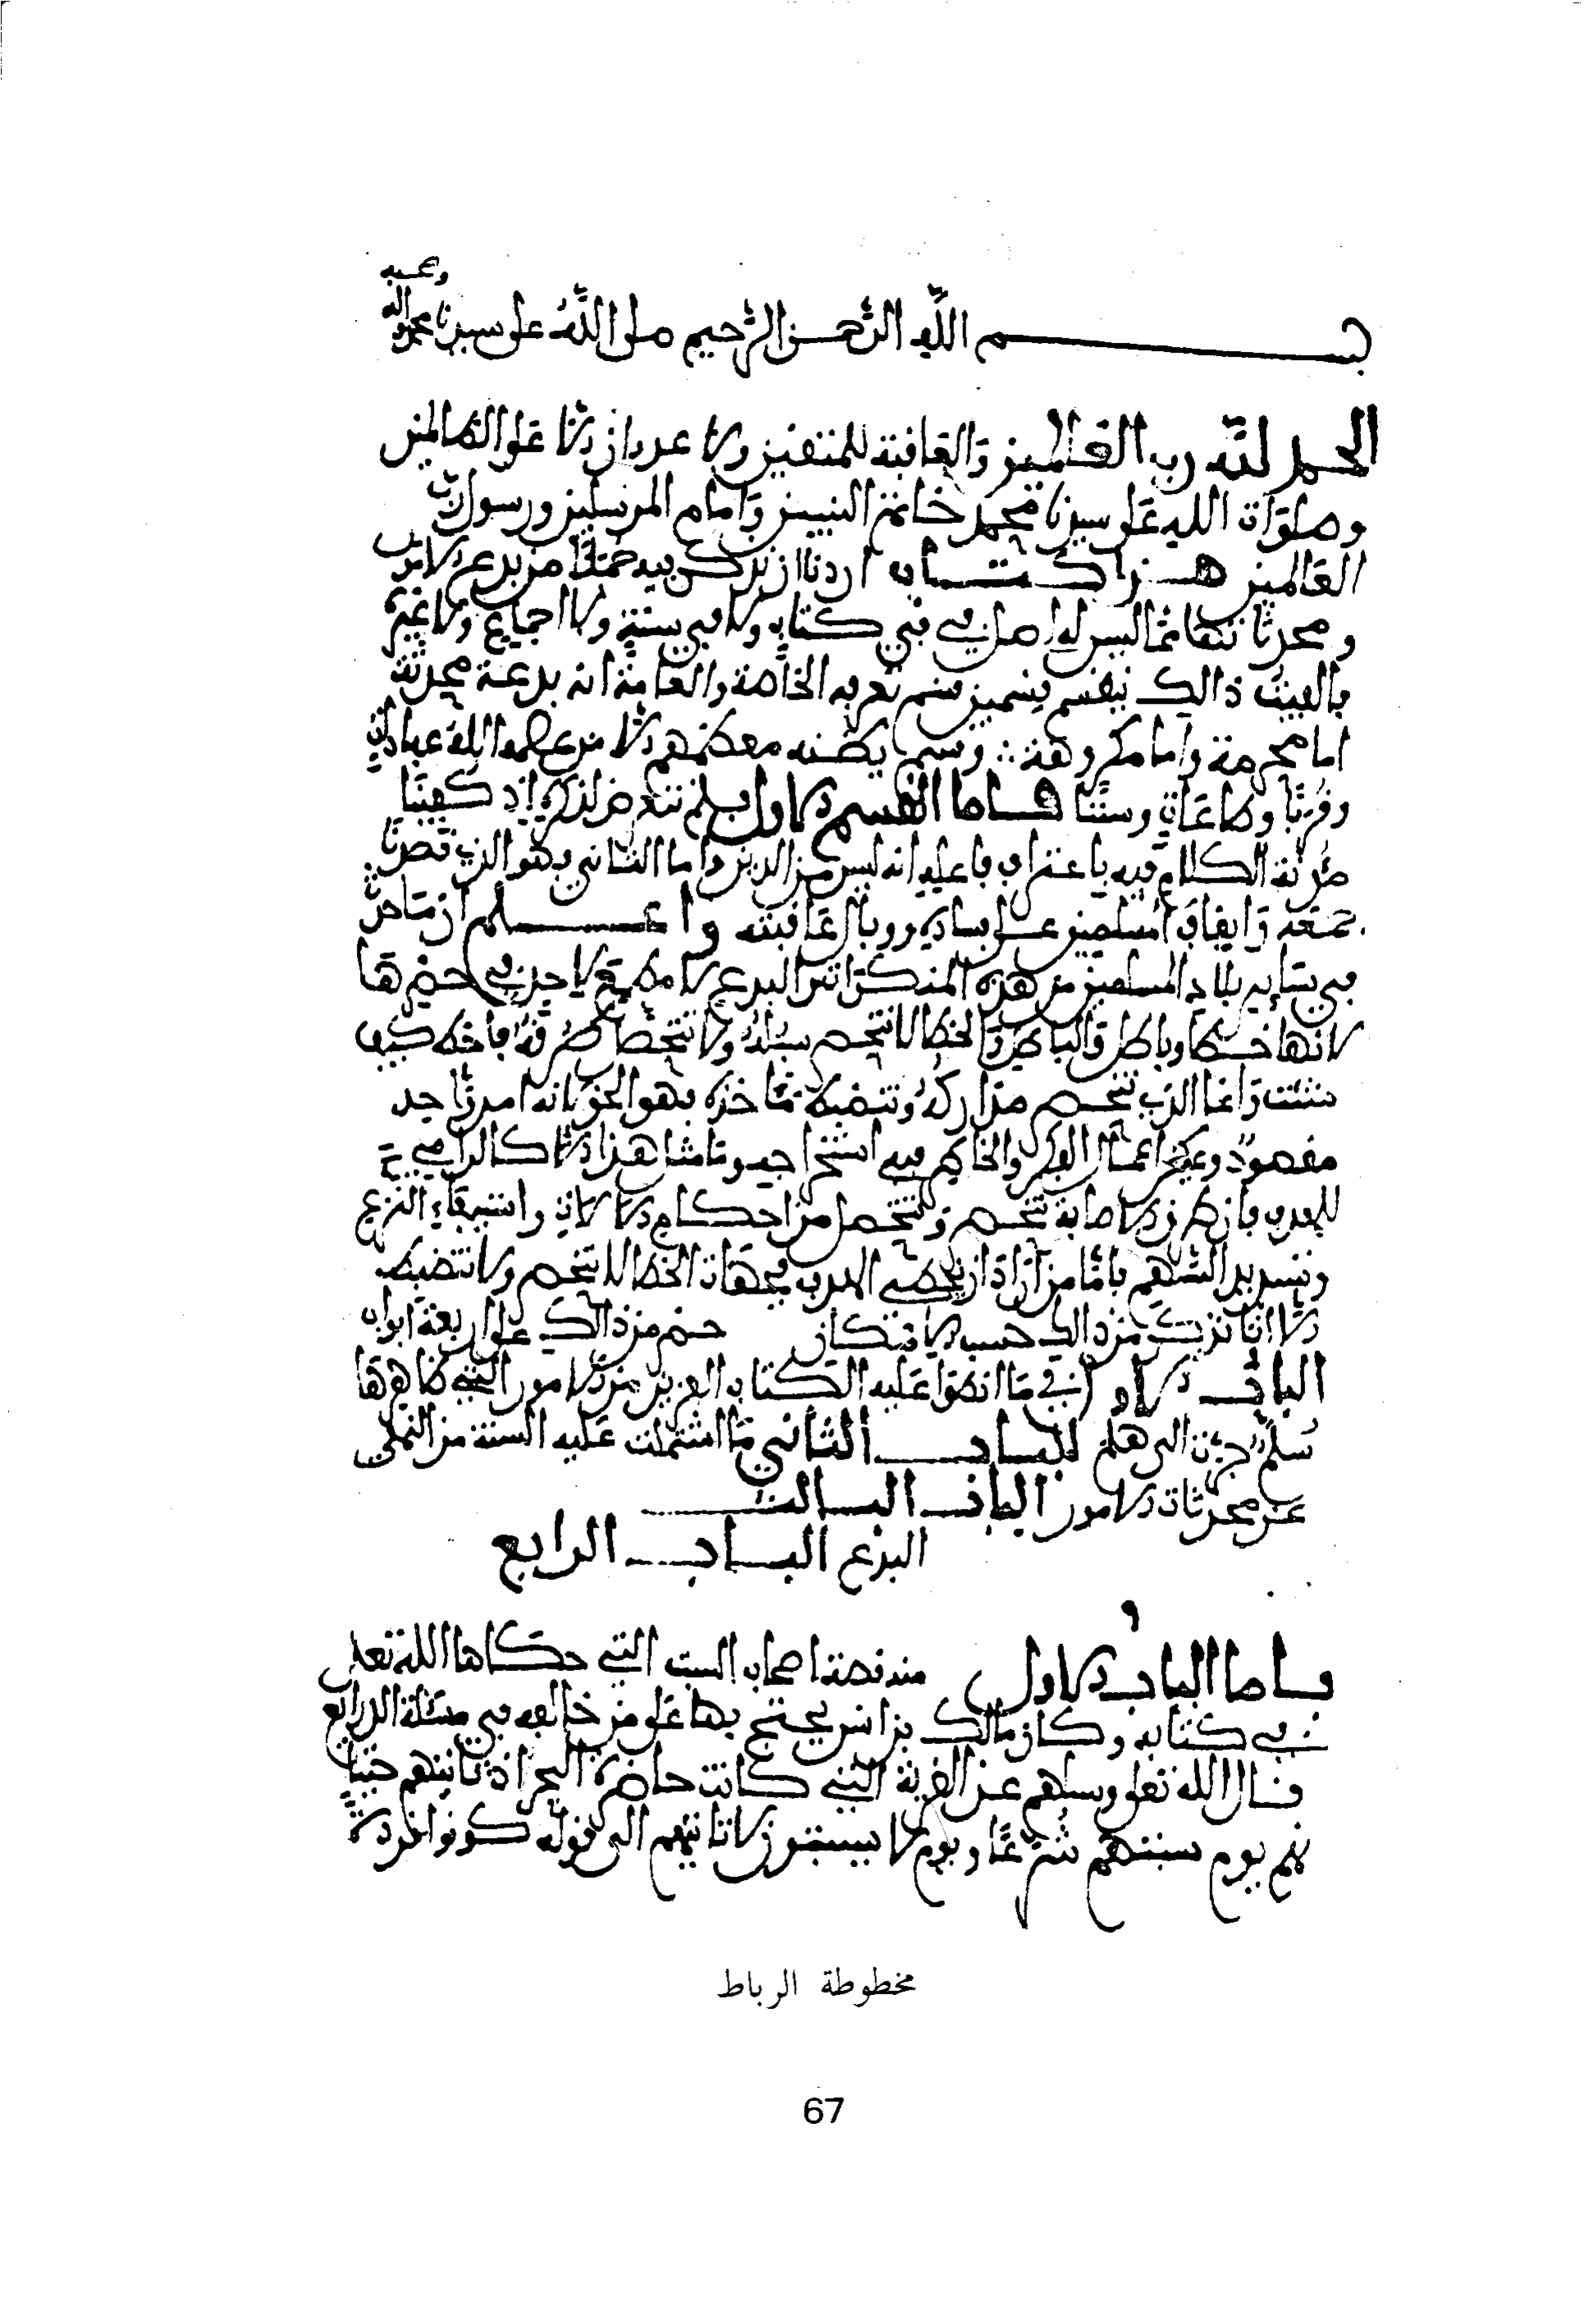 وصحبه
بسم الله الرحمن الرحيم صلى الله على سيدنا محمد وآله
الحمد لله رب العالمين والعاقبة للمتقين ولا عدوان الا على الظالمين
وصلوات الله على سيدنا محمد خاتم النبيين وامام المرسلين ورسول رب
العالمين هذا كتاب اردنا ان نذكر فيه جملا من بدع الامور
ومحدثاتها مما ليس له اصل في كتاب ولا في سنة ولا اجماع ولا غيره
فالفيت ذالك ينقسم قسمين قسم تعرفه الخاصة والعامة انه بدعة محدثة
اما محرمة واما مكروهة وقسم يظنه معظمهم الا من عصم الله عبادات
وقربا وطاعات وسننا فاما القسم الاول فلم نتعرض لذكره إذ كفينا
مؤنة الكلام فيه باعتراف فاعليه انه ليس من الدين واما الثاني فهو الذي قصدنا
جمعه وايقاف المسلمين على فساده ووبال عاقبته واعلم ان ما حدث
في سائر بلاد المسلمين من هذه المنكرات البدع لا مطمع لاحد في حصرها
لانها خطا وباطل والباطل والخطا لا تنحصر سبله ولا تتحصل طرقه فاخط كيف
شئت وانما الذي تنحصر مداركه وتنضبط مآخذه فهو الحق لانه امر واحد
مقصود ويمكن اعمال الفكر والخاطر في استخراجه وما مثال هذا الا كالرامي
للهدف فان طرق الاصابة تنحصر وتتحصل من احكام الالات واستيفاء النزع
وتسديد السهم فاما من اراد ان يخطي الهدف فجهات الخطا لا تنحصر ولا تنضبط
الا انا نذكر من ذالك حسب الامكان حصر من ذالك على اربعة ابواب
الباب الاول في ما انطوى عليه الكتاب العزيز من الامور التي ظاهرها
سلم جرت الى هلك الباب الثاني ما اشتملت عليه السنة من النهي
عن محدثات الامور الباب الثالث
البدع الباب الرابع
فاما الباب الاول منه قصة اصحاب السبت التي حكاها الله تعلى
في كتابه وكان مالك بن انس يحتج بها على من خالفه في مسئلة الذرايع
قال الله تعلى وسلهم عن القرية التي كانت حاضرة البحر اذ تاتيهم حيتا
نهم يوم سبتهم شرعا ويوم لا يسبتون لا تاتيهم الى قوله كونوا قردة
مخطوطة الرباط
67